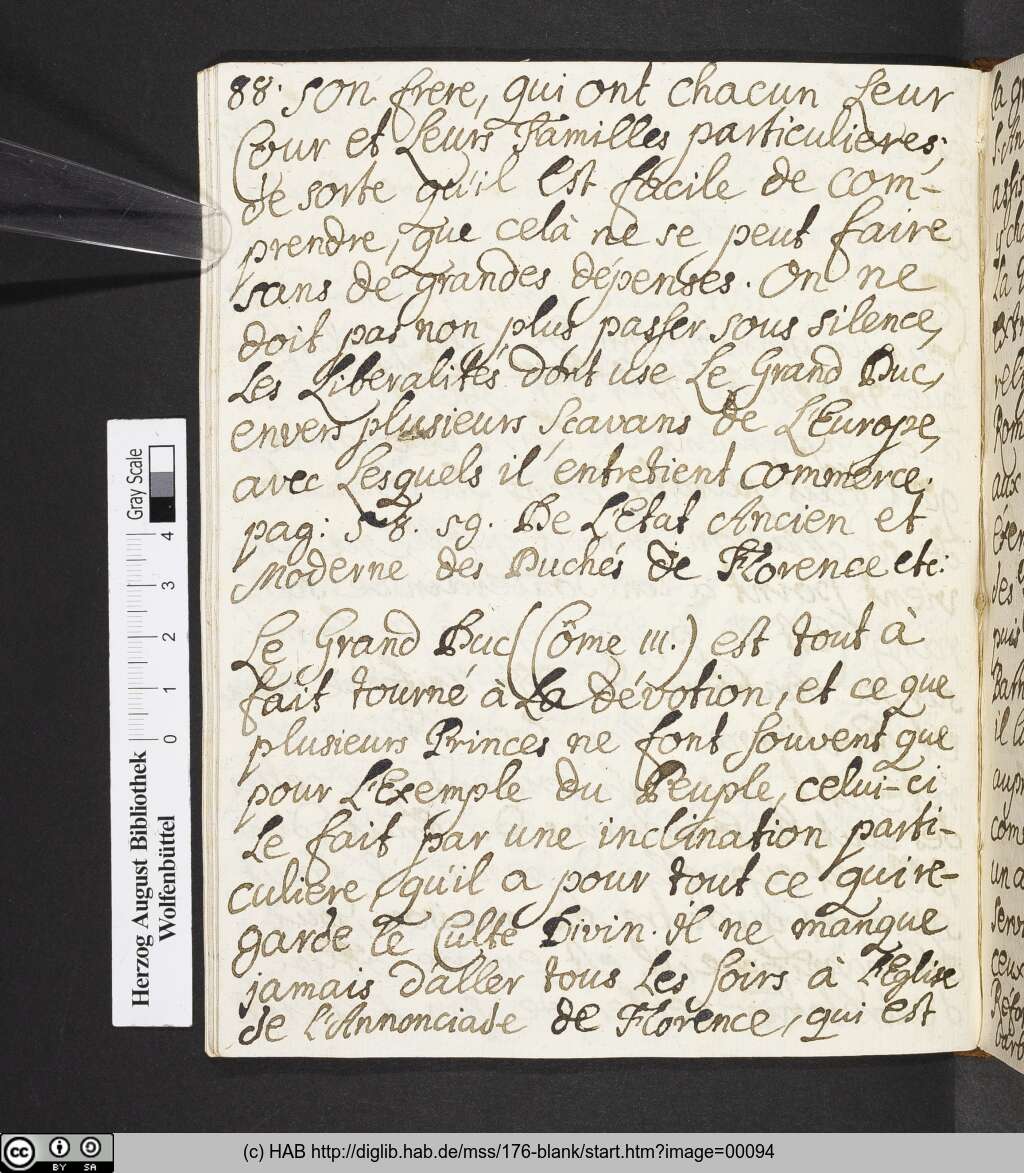 88. son frere, qui ont chacun Leur
Cour et Leurs Familles particulieres;
de sorte qu'il Est facile de com-
prendre, que celà ne se peut faire
sans de grandes dépenses. On ne
doit pas non plus passer sous silence,
Les Liberalités dont use Le Grand Duc,
envers plusieurs Scavans de L'Europe,
avec Lesquels il entretient commerce.
pag: 58. 59. De L'Etat Ancien et
Moderne des Duchés de Florence etc:
Le Grand Duc (Côme III.) est tout à
fait tourné à La dévotion, et ce que
plusieurs Princes ne font souvent que
pour L'Exemple du Peuple, celui-ci
Le fait par une inclination parti-
culiere, qu'il a pour tout ce qui re-
garde le Culte Divin. il ne manque
jamais d'aller tous Les soirs à L'Eglise
de L'Annonciade de Florence, qui est
Gray Scale
4
3
2
1
0
Herzog August Bibliothek
Wolfenbüttel
cc BY SA
(c) HAB http://diglib.hab.de/mss/176-blank/start.htm?image=00094